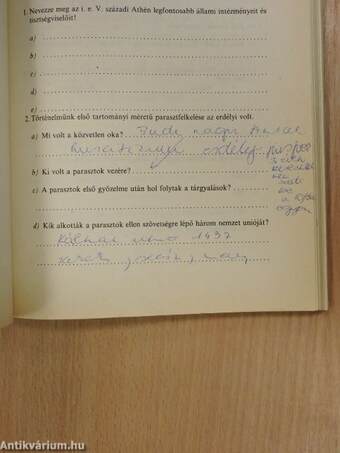 1. Nevezze meg az i. e. V. századi Athén legfontosabb állami intézményeit és
tisztségviselőit!
a)
b)
c)
d)
e)
2. Történelmünk első tartományi méretű parasztfelkelése az erdélyi volt.
a) Mi volt a közvetlen oka? Budai Nagy Antal
erdélyi püspök
b) Ki volt a parasztok vezére?
c) A parasztok első győzelme után hol folytak a tárgyalások?
d) Kik alkották a parasztok ellen szövetségre lépő három nemzet unióját?
Kápolnai unió 1437
Antikvárium.hu